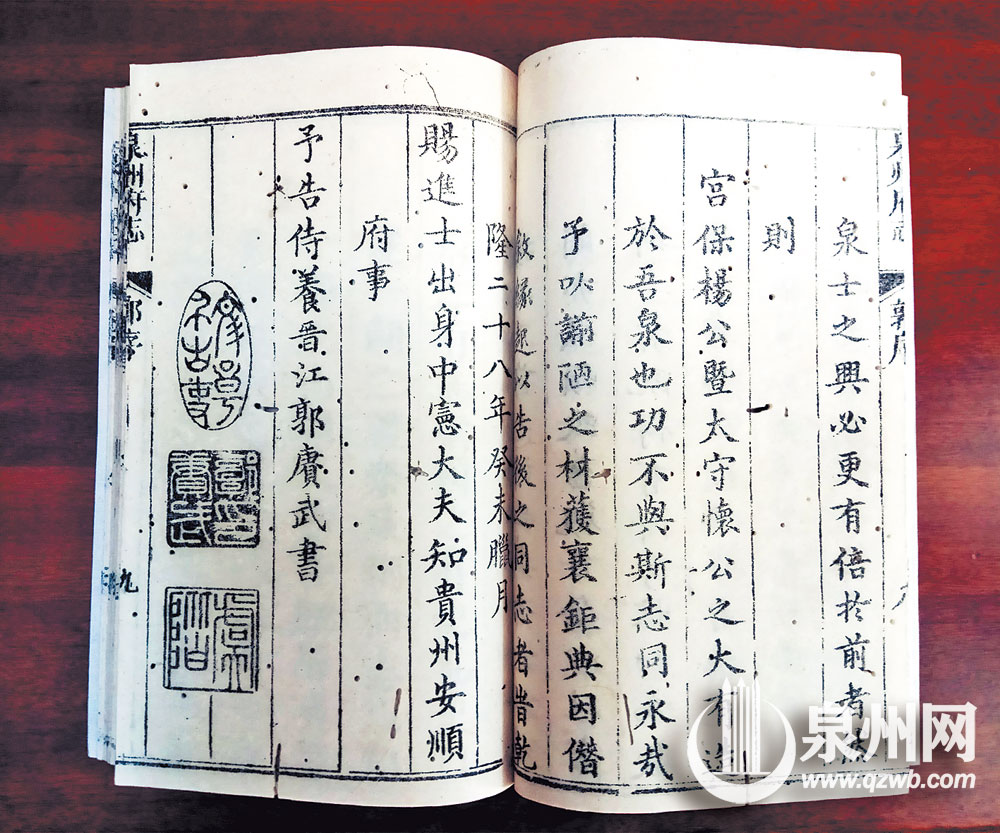 泉士之興必更有倍於前者然
則
宮保楊公暨太守懷公之大有造
於吾泉也功不與斯志同永哉
予以謭陋之材獲襄鉅典因僭
敘緣起以告後之同志者旹乾
隆二十八年癸未臘月
賜進士出身中憲大夫知貴州安順
府事
予告侍養晋江郭賡武書
泉州府志
郭序
九
泉州府志
郭序
郭印賡武
泉州网
www.qzwb.com